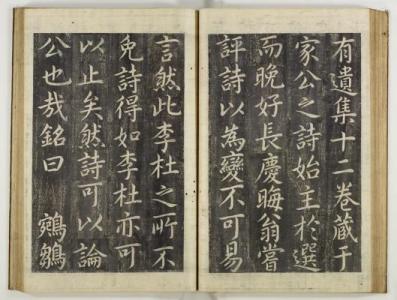 有遺集十二卷蔵于
家公之詩始主於選
而晚好長慶晦翁嘗
評詩以為變不可易
言然此李杜之所不
免詩得如李杜亦可
以止矣然詩可以論
公也哉銘曰　鵷雛